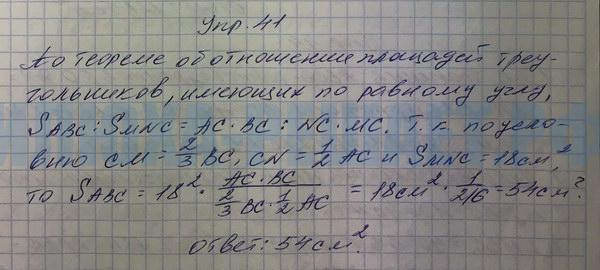 Упр. 41
По теореме об отношении площадей треу-
гольников, имеющих по равному углу,
SABC : SMNC = AC · BC : NC · MC. Т. к. по усло-
вию CM = 2/3 BC, CN = 1/2 AC и SMNC = 18 см²,
то SABC = 18² · AC · BC / (2/3 BC · 1/2 AC) = 18 см² · 1/(2/6) = 54 см².
Ответ: 54 см².